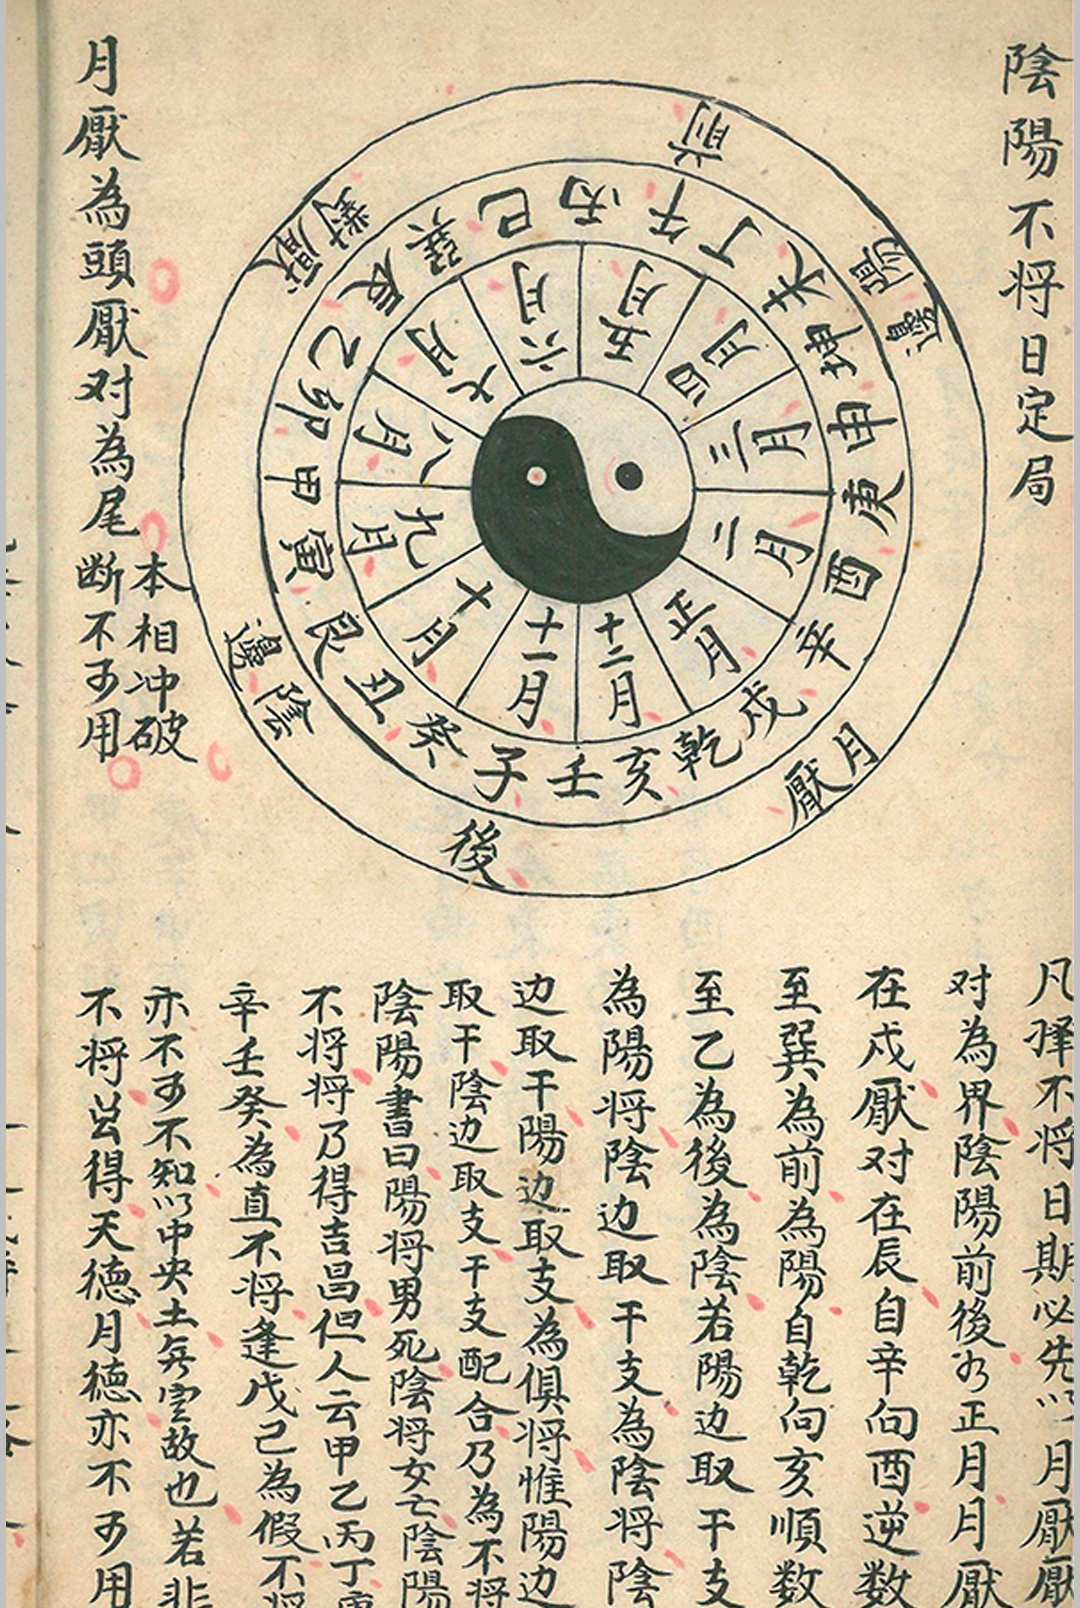 陰陽不将日定局
前
陽邊
月厭
後
陰邊
對厭
壬子癸丑艮寅甲卯乙辰巽巳丙午丁未坤申庚酉辛戌乾亥
正月
二月
三月
四月
五月
六月
七月
八月
九月
十月
十一月
十二月
月厭為頭厭对為尾
本相冲破
断不可用
凡择不将日期必先以月厭厭
对為界陰陽前後如正月月厭
在戌厭对在辰自辛向酉逆数
至巽為前為陽自乾向亥順数
至乙為後為陰若陽边取干支
為陽将陰边取干支為陰将陰
边取干陽边取支為俱将惟陽边
取干陰边取支干支配合乃為不将
陰陽書曰陽将男死陰将女亡陰陽
不将将乃得吉昌但人云甲乙丙丁庚
辛壬癸為直不将逢戊己為假不将
亦不可不知以中央土無定故也若非
不将兰得天德月德亦不可用